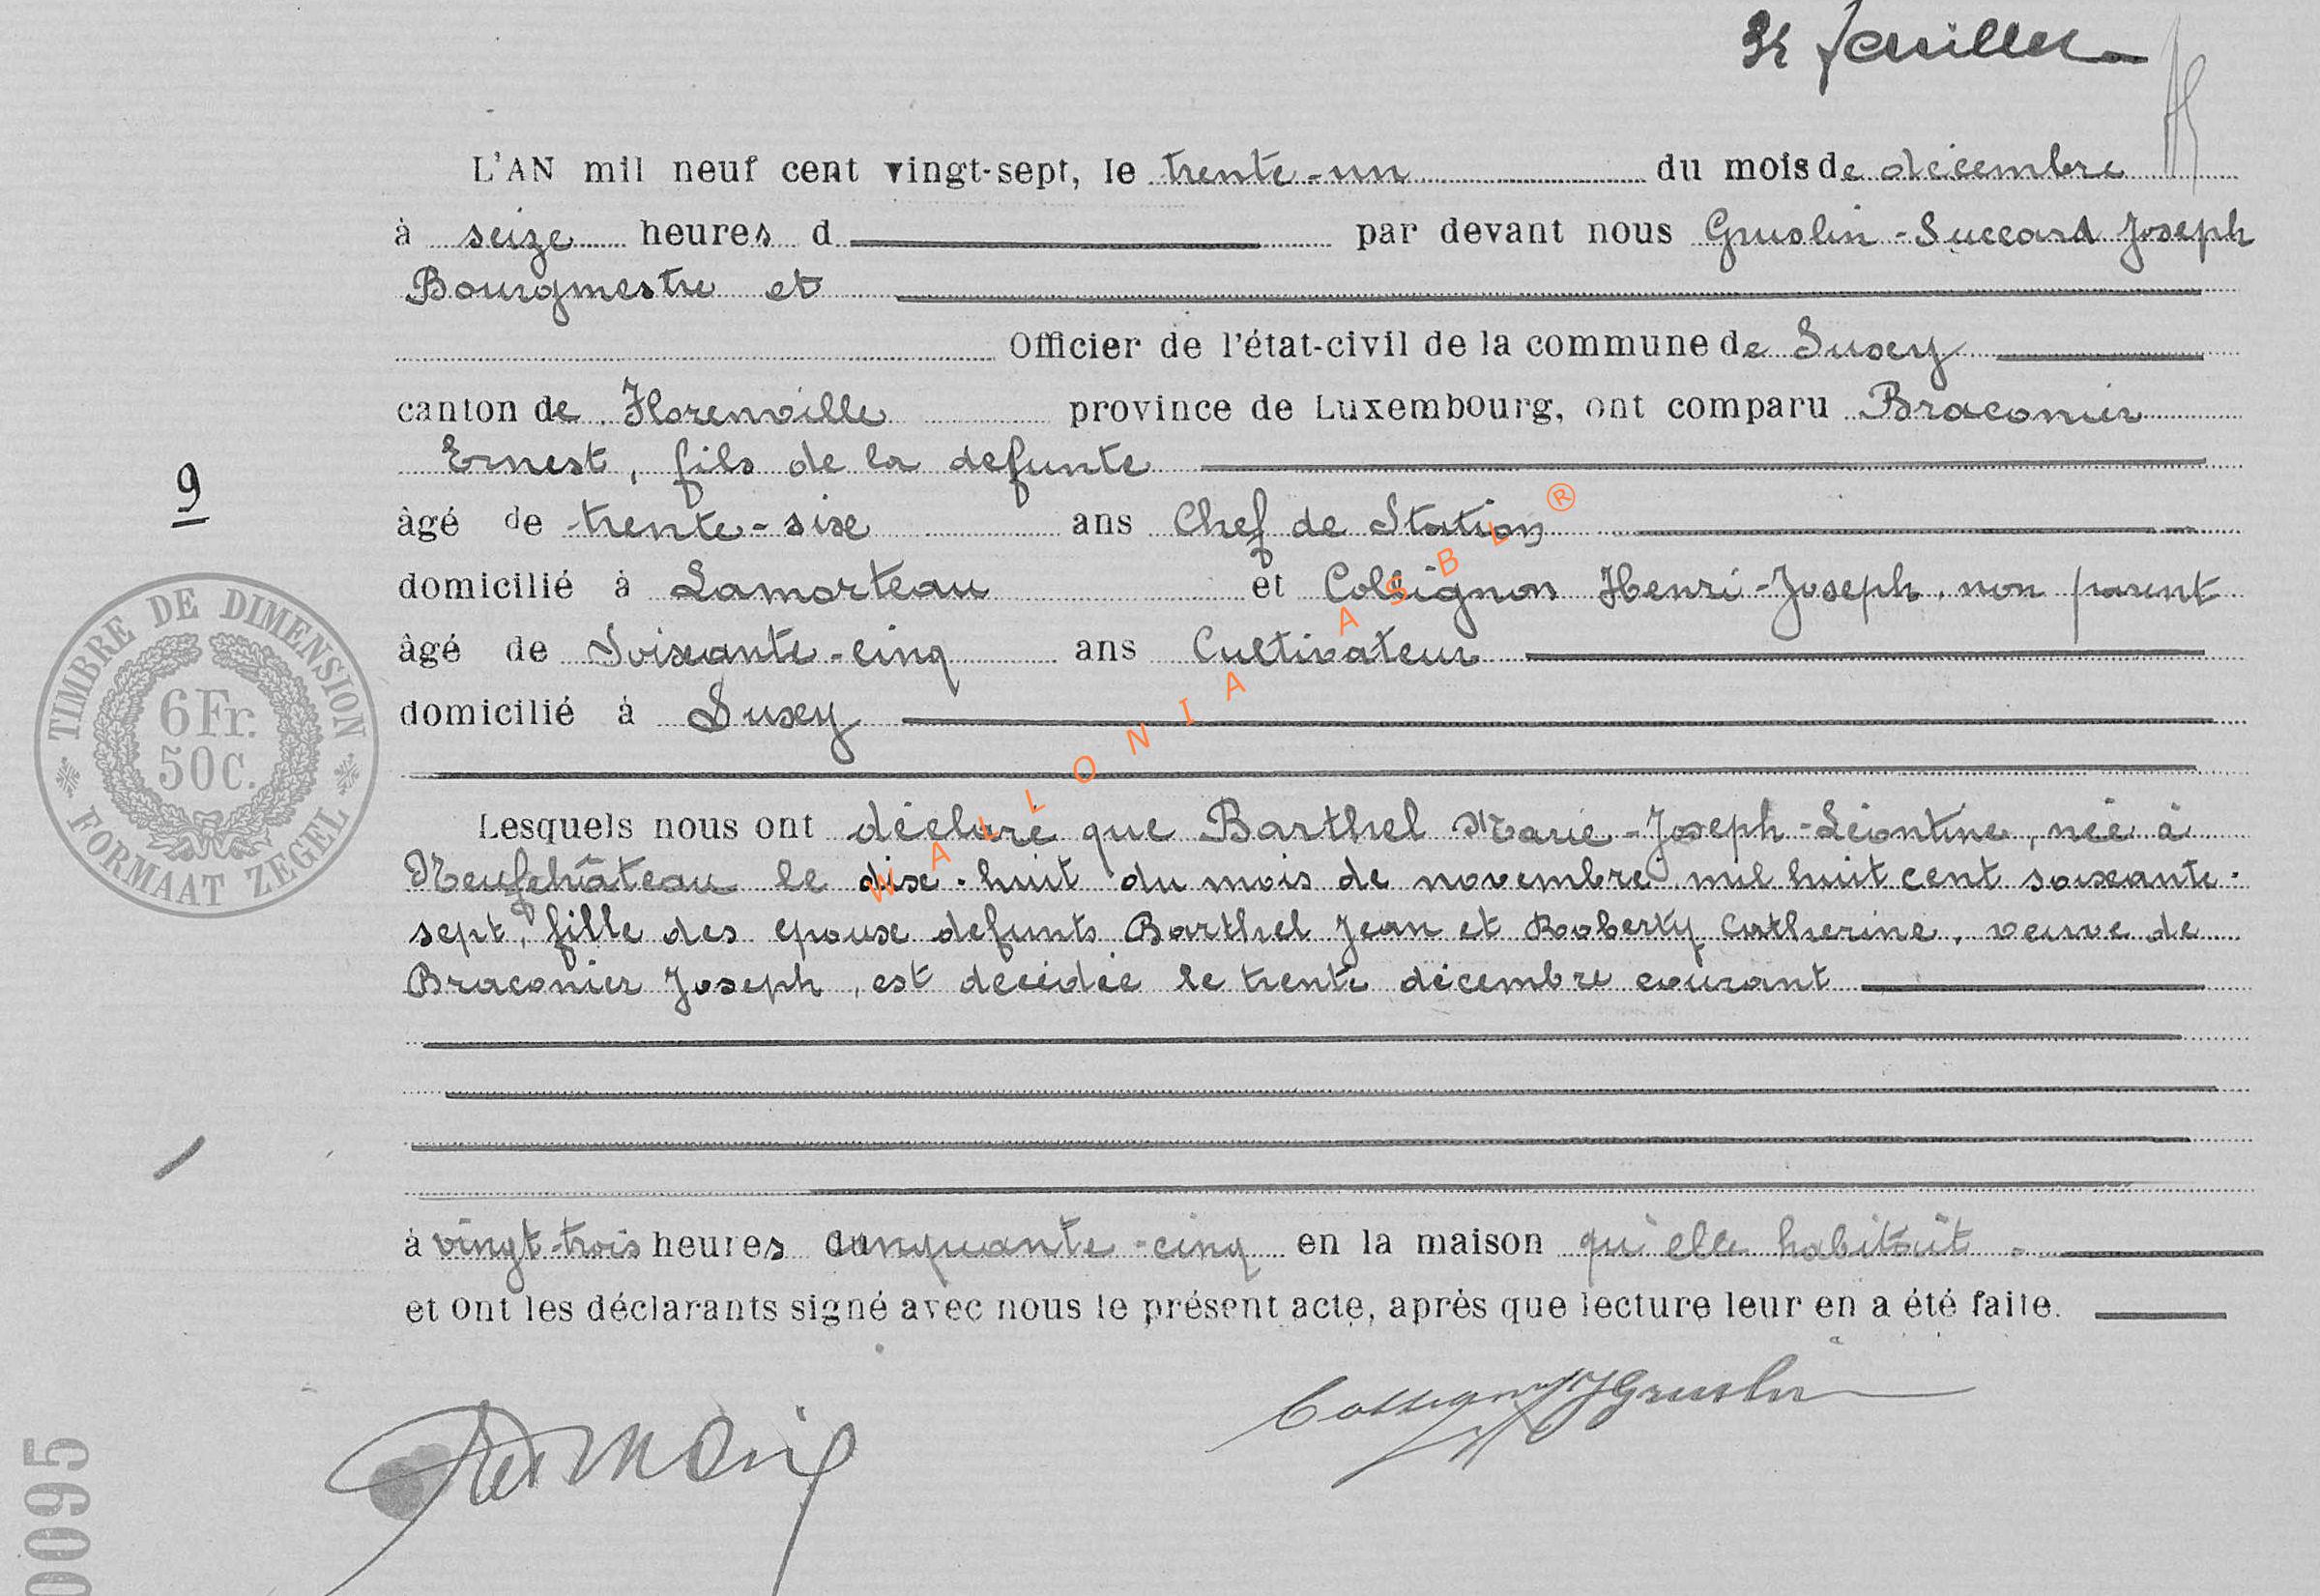 feuillet
L'AN mil neuf cent vingt-sept, le trente-un du mois de décembre
à seize heures d par devant nous Gruslin-Succard Joseph
Bourgmestre et
Officier de l'état-civil de la commune de Suxy
canton de Florenville province de Luxembourg, ont comparu Braconier
Ernest, fils de la defunte
9
âgé de trente-six ans Chef de Station
domicilié à Lamorteau et Collignon Henri-Joseph, non parent
âgé de Soixante-cinq ans Cultivateur
domicilié à Suxy
TIMBRE DE DIMENSION
6 Fr.
50 C.
FORMAAT ZEGEL
WALLONIA ASBL ®
Lesquels nous ont déclaré que Barthel Marie-Joseph-Léontine, née à
Neufchâteau le dix-huit du mois de novembre mil huit cent soixante-
sept, fille des epoux defunts Barthel Jean et Roberty Catherine, veuve de
Braconier Joseph, est décédée le trente décembre courant
à vingt-trois heures cinquante-cinq en la maison qu'elle habitait.
et ont les déclarants signé avec nous le présent acte, après que lecture leur en a été faite.
Collignon JGruslin
0095